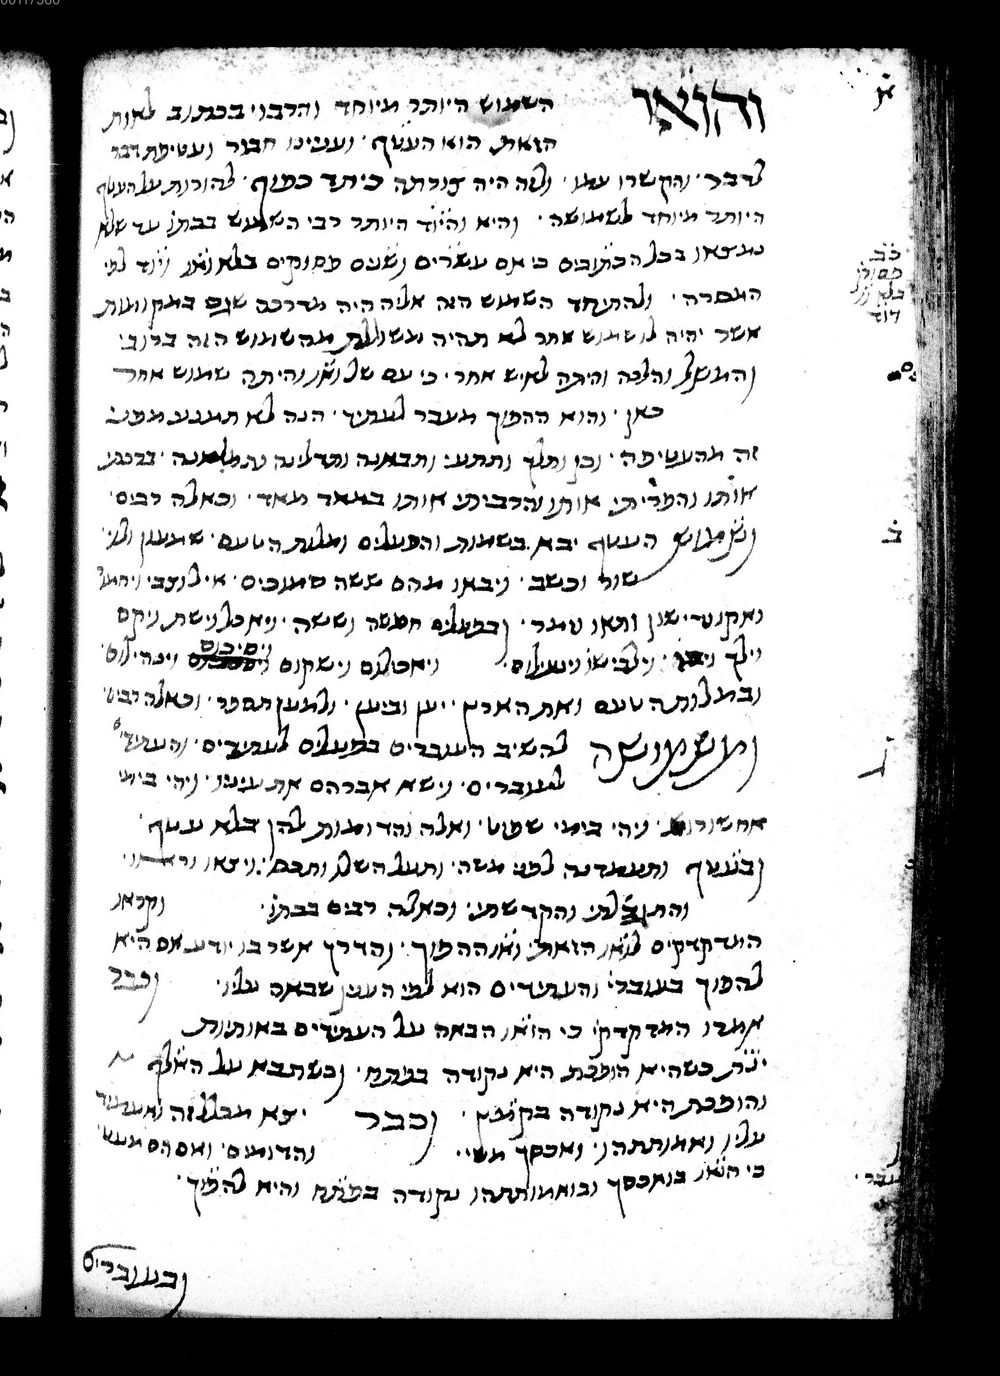 והואו השמוש היותר מיוחד והרבני בכתוב לאות
הזאת הוא העטף · וענינו חבור ועטיפת דבר
לדבר · והקשרו עמו · ולזה היה צורתה כיתד כפוף · להורות על העטף
היותר מיוחד לשמושה · והיא והיוד היותר רבי השמוש בכתו׳ עד שלא
נמצאו בכל הכתובים כי אם עשרים ושנים פסוקים בלא ואו ויוד לפי
המסרה · ולהתיחד השמוש הזה אליה היה מדרכה שגם במקומות
אשר יהיה לו שמוש אחר לא תהיה משוללת מהשמוש הזה ברוב ·
והמשל והלכה והיתה לאיש אחר · כי עם של ואו והיתה שמוש אחר
כאן · והוא ההפוך מעבר לעתיד · הנה לא תמנע מפני
זה מהעטיפה · וכן ותלך ותתע · ותבאנה ותדלינה ותמלאנה · ברכתי
אותו והפריתי אותו והרביתי אותו במאד מאד · וכאלה רבים ·
ושמוש העטף יבא בשמות והפעלים ומלות הטעם · שמעון ולוי ·
שור וכשב · ויבאו מהם ששה סמוכים ·
ואקו ודישון ותאו וזמר · ובפעלים חמשה וששה · ויאכל וישת ויקם
וילך · וילבישו וינעילום · ויאכילום וישקום ויסיכום וינהילום
ובמלות הטעם ואת הארץ · יען וביען · ולמען תספר · וכאלה רבים ·
ומשמושה להשיב העוברים בפעלים לעתידים · והעתידי׳
לעוברים · וישא אברהם את עיניו · ויהי בימי
אחשורוש · ויהי בימי שפוט · ואלה והדומות להן בלא עטף ·
ובעטף ותעמדנה לפני משה · ותעל השלו ותכס ·
והתגדלתי והתקדשתי · וכאלה רבים בכתו׳ · וקראו
המדקדקים לואו הזאת ואו ההפוך · והדרך אשר בו יודע אם היא
להפוך בעוברי׳ והעתידים הוא לפי הענין שבאה עליו · וכבר
אמרו המדקדקי׳ כי הואו הבאה על העתידים באותיות
ינ״ת כשהיא הופכת היא נקודה בפתח · וכשתבא על האלף
והופכת היא נקודה בקמץ · וכבר יצא מכלל זה
עליו ואמותתהו · ואכסך משי · והדומים · ואם הם
כי הואו בואכסך ובואמותתהו נקודה בפתח והיא להפוך ·
ובעוברים
א
כ״ב
פסוקי׳
בלא ו׳
ויוד
ב
ג